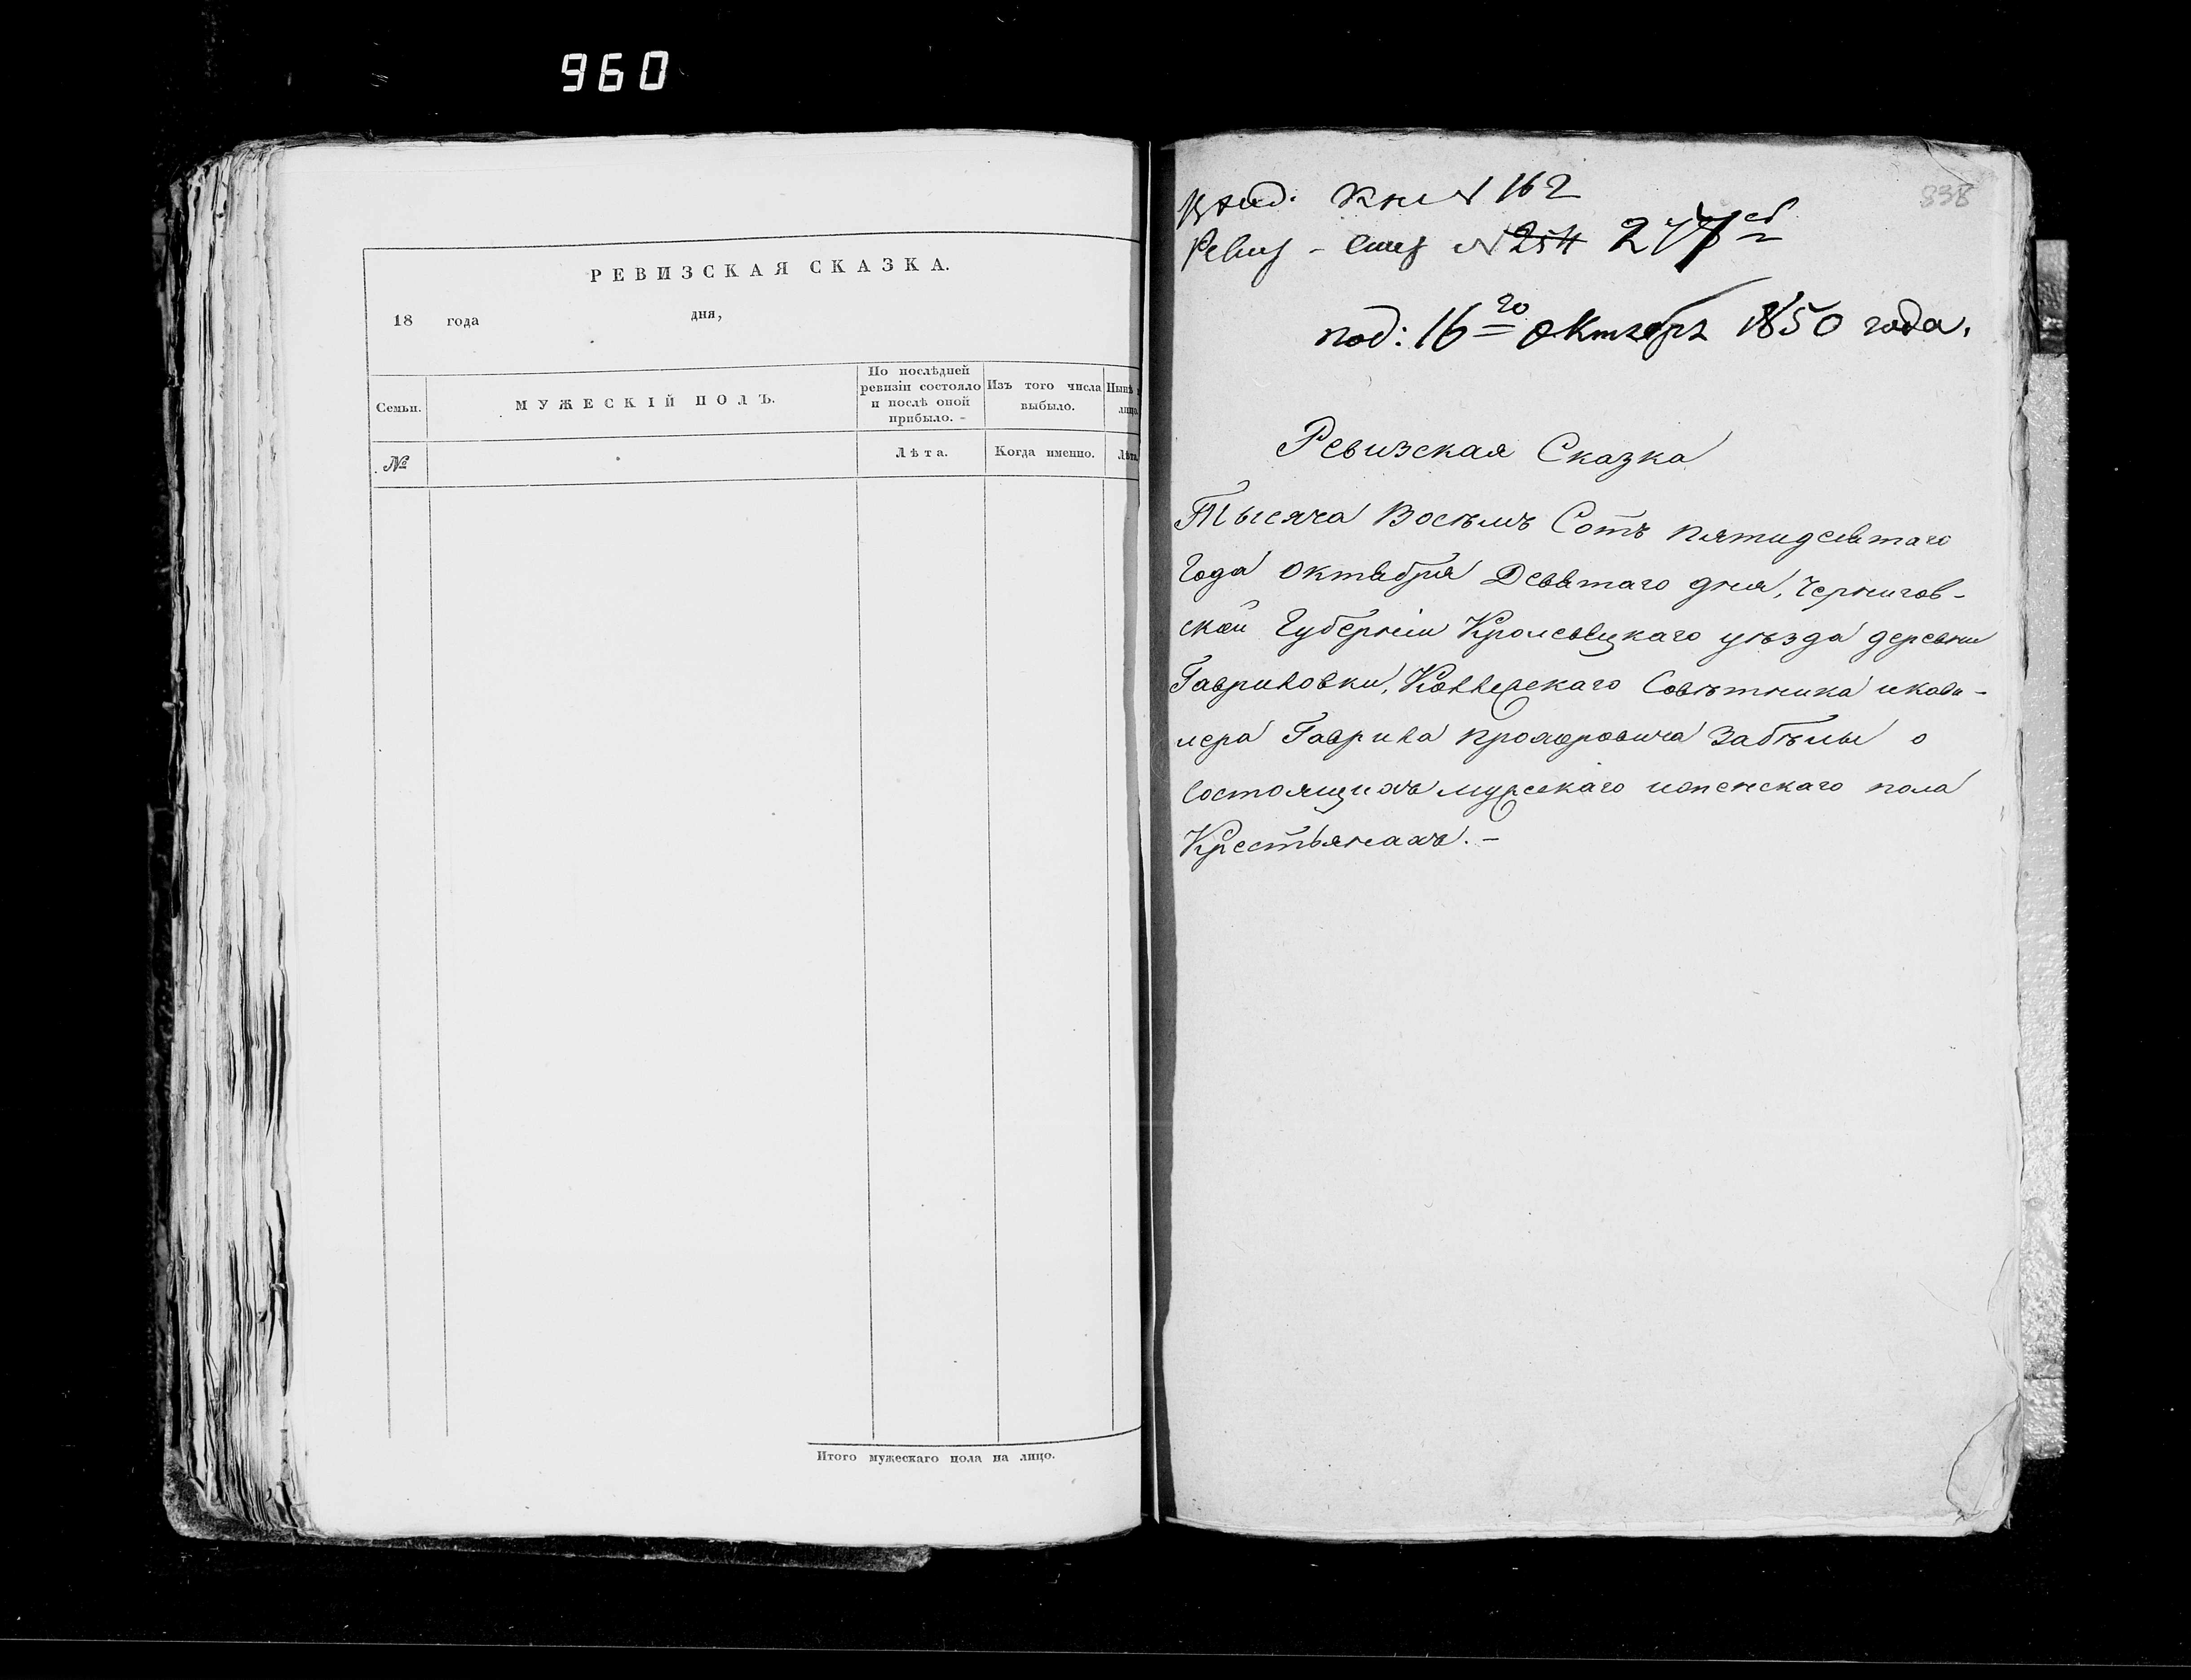 960
РЕВИЗСКАЯ СКАЗКА.
18 года дня,
Семьи.
МУЖЕСКІЙ ПОЛЪ.
По послѣдней
ревизіи состояло
и послѣ оной
прибыло.
Изъ того числа
выбыло.
Нынѣ
лицо
№
Лѣта.
Когда именно.
Лѣта
Итого мужескаго пола на лицо.
838
Вход. кни № 162
Ревиз - № 254 277
под: 16го Октября 1850 года.
Ревизская Сказка
Тысяча Восѣмъ Сотъ пятидесятаго
Года Октября Девятаго дня, Чернигов-
ской Губерніи Кролевецкаго уѣзда деревни
Гавриловки, Коллерскаго Совѣтника икава-
лера Гаврила Забѣлы о
состоящихъ мужескаго иженскаго пола
Крестьянахъ. -